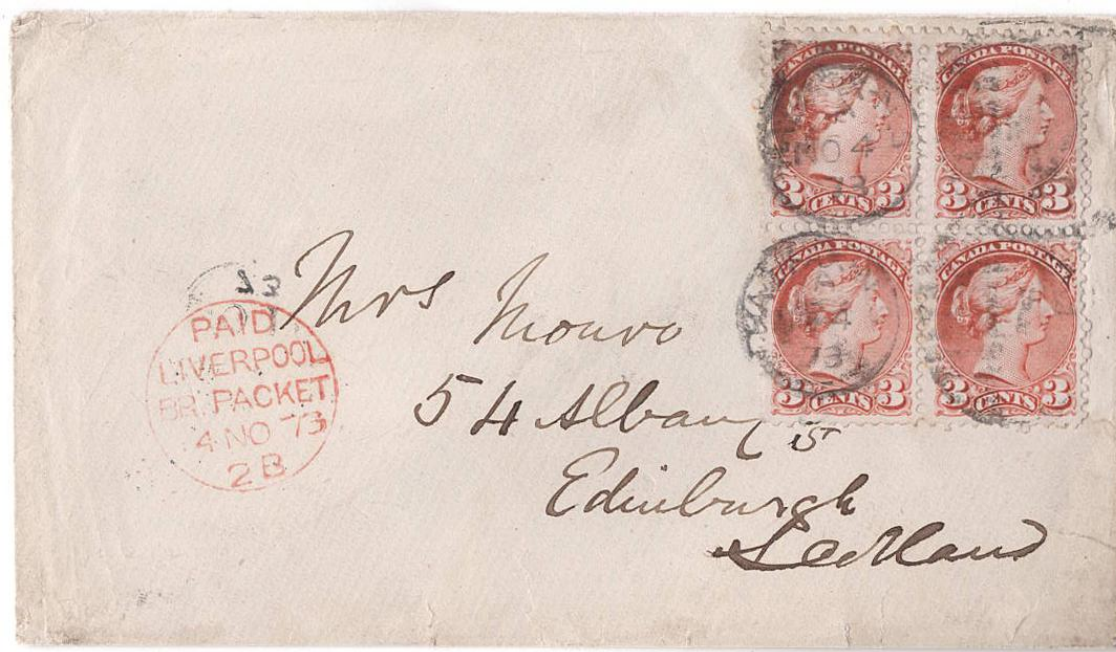 CANADA POSTAGE
3 CENTS 3
CANADA POSTAGE
3 CENTS 3
NO 4
73
CANADA POSTAGE
3 CENTS 3
CANADA POSTAGE
3 CENTS 3
73
73
PAID
LIVERPOOL
BR. PACKET
4 NO 73
2B
Mrs Monro
54 Albany St
Edinburgh
Scotland